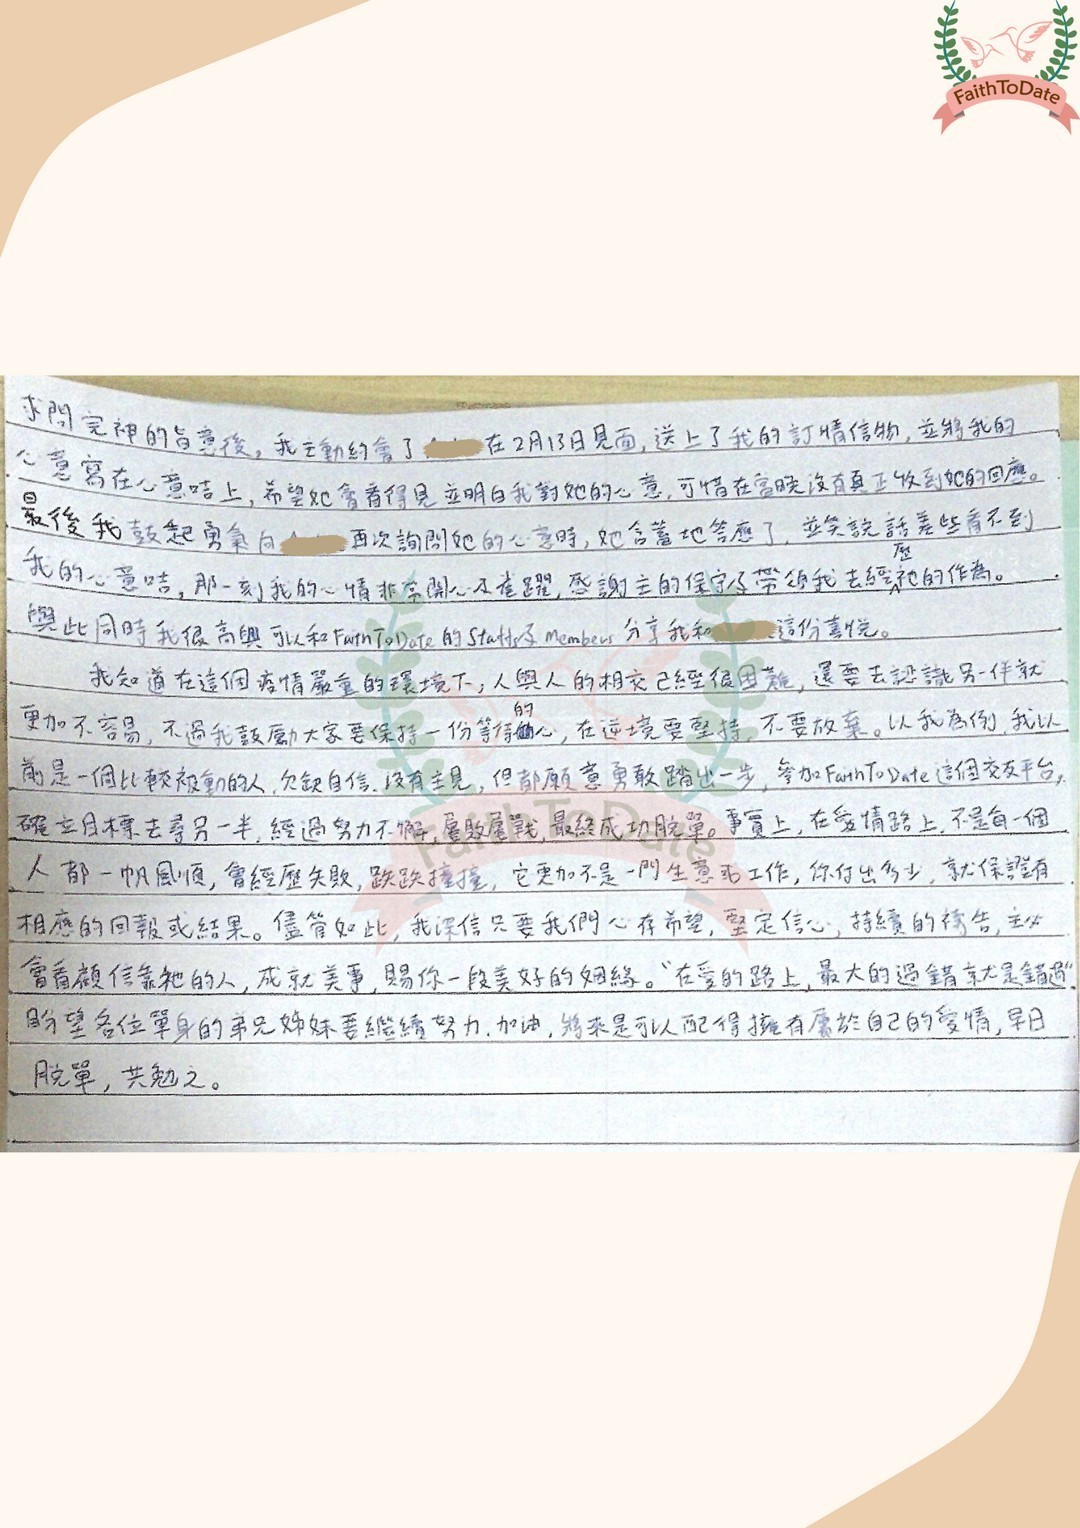 FaithToDate
求問完神的旨意後，我主動約會了 在2月13日見面，送上了我的訂情信物，並將我的
心意寫在心意咭上，希望她會看得見並明白我對她的心意，可惜在當晚沒有真正收到她的回應。
最後我鼓起勇氣向 再次詢問她的心意時，她含蓄地答應了，並笑說話差些看不到
我的心意咭，那一刻我的心情非常開心及雀躍，感謝主的保守及帶領我去經歷祂的作為。
與此同時我很高興可以和FaithToDate的Staffs及Members分享我和 這份喜悅。
我知道在這個疫情嚴重的環境下，人與人的相交已經很困難，還要去認識另一伴就
更加不容易，不過我鼓勵大家要保持一份等待的心，在逆境要堅持，不要放棄。以我為例，我以
前是一個比較被動的人，欠缺自信、沒有主見，但都願意勇敢踏出一步，參加FaithToDate這個交友平台，
確立目標去尋另一半，經過努力不懈，屢敗屢戰，最終成功脫單。事實上，在愛情路上，不是每一個
人都一帆風順，會經歷失敗，跌跌撞撞，它更加不是一門生意或工作，你付出多少，就保證有
相應的回報或結果。儘管如此，我深信只要我們心存希望，堅定信心，持續的禱告，主必
會看顧信靠祂的人，成就美事，賜你一段美好的姻緣。"在愛的路上，最大的過錯就是錯過"
盼望各位單身的弟兄姊妹要繼續努力、加油，將來是可以配得擁有屬於自己的愛情，早日
脫單，共勉之。
FaithToDate